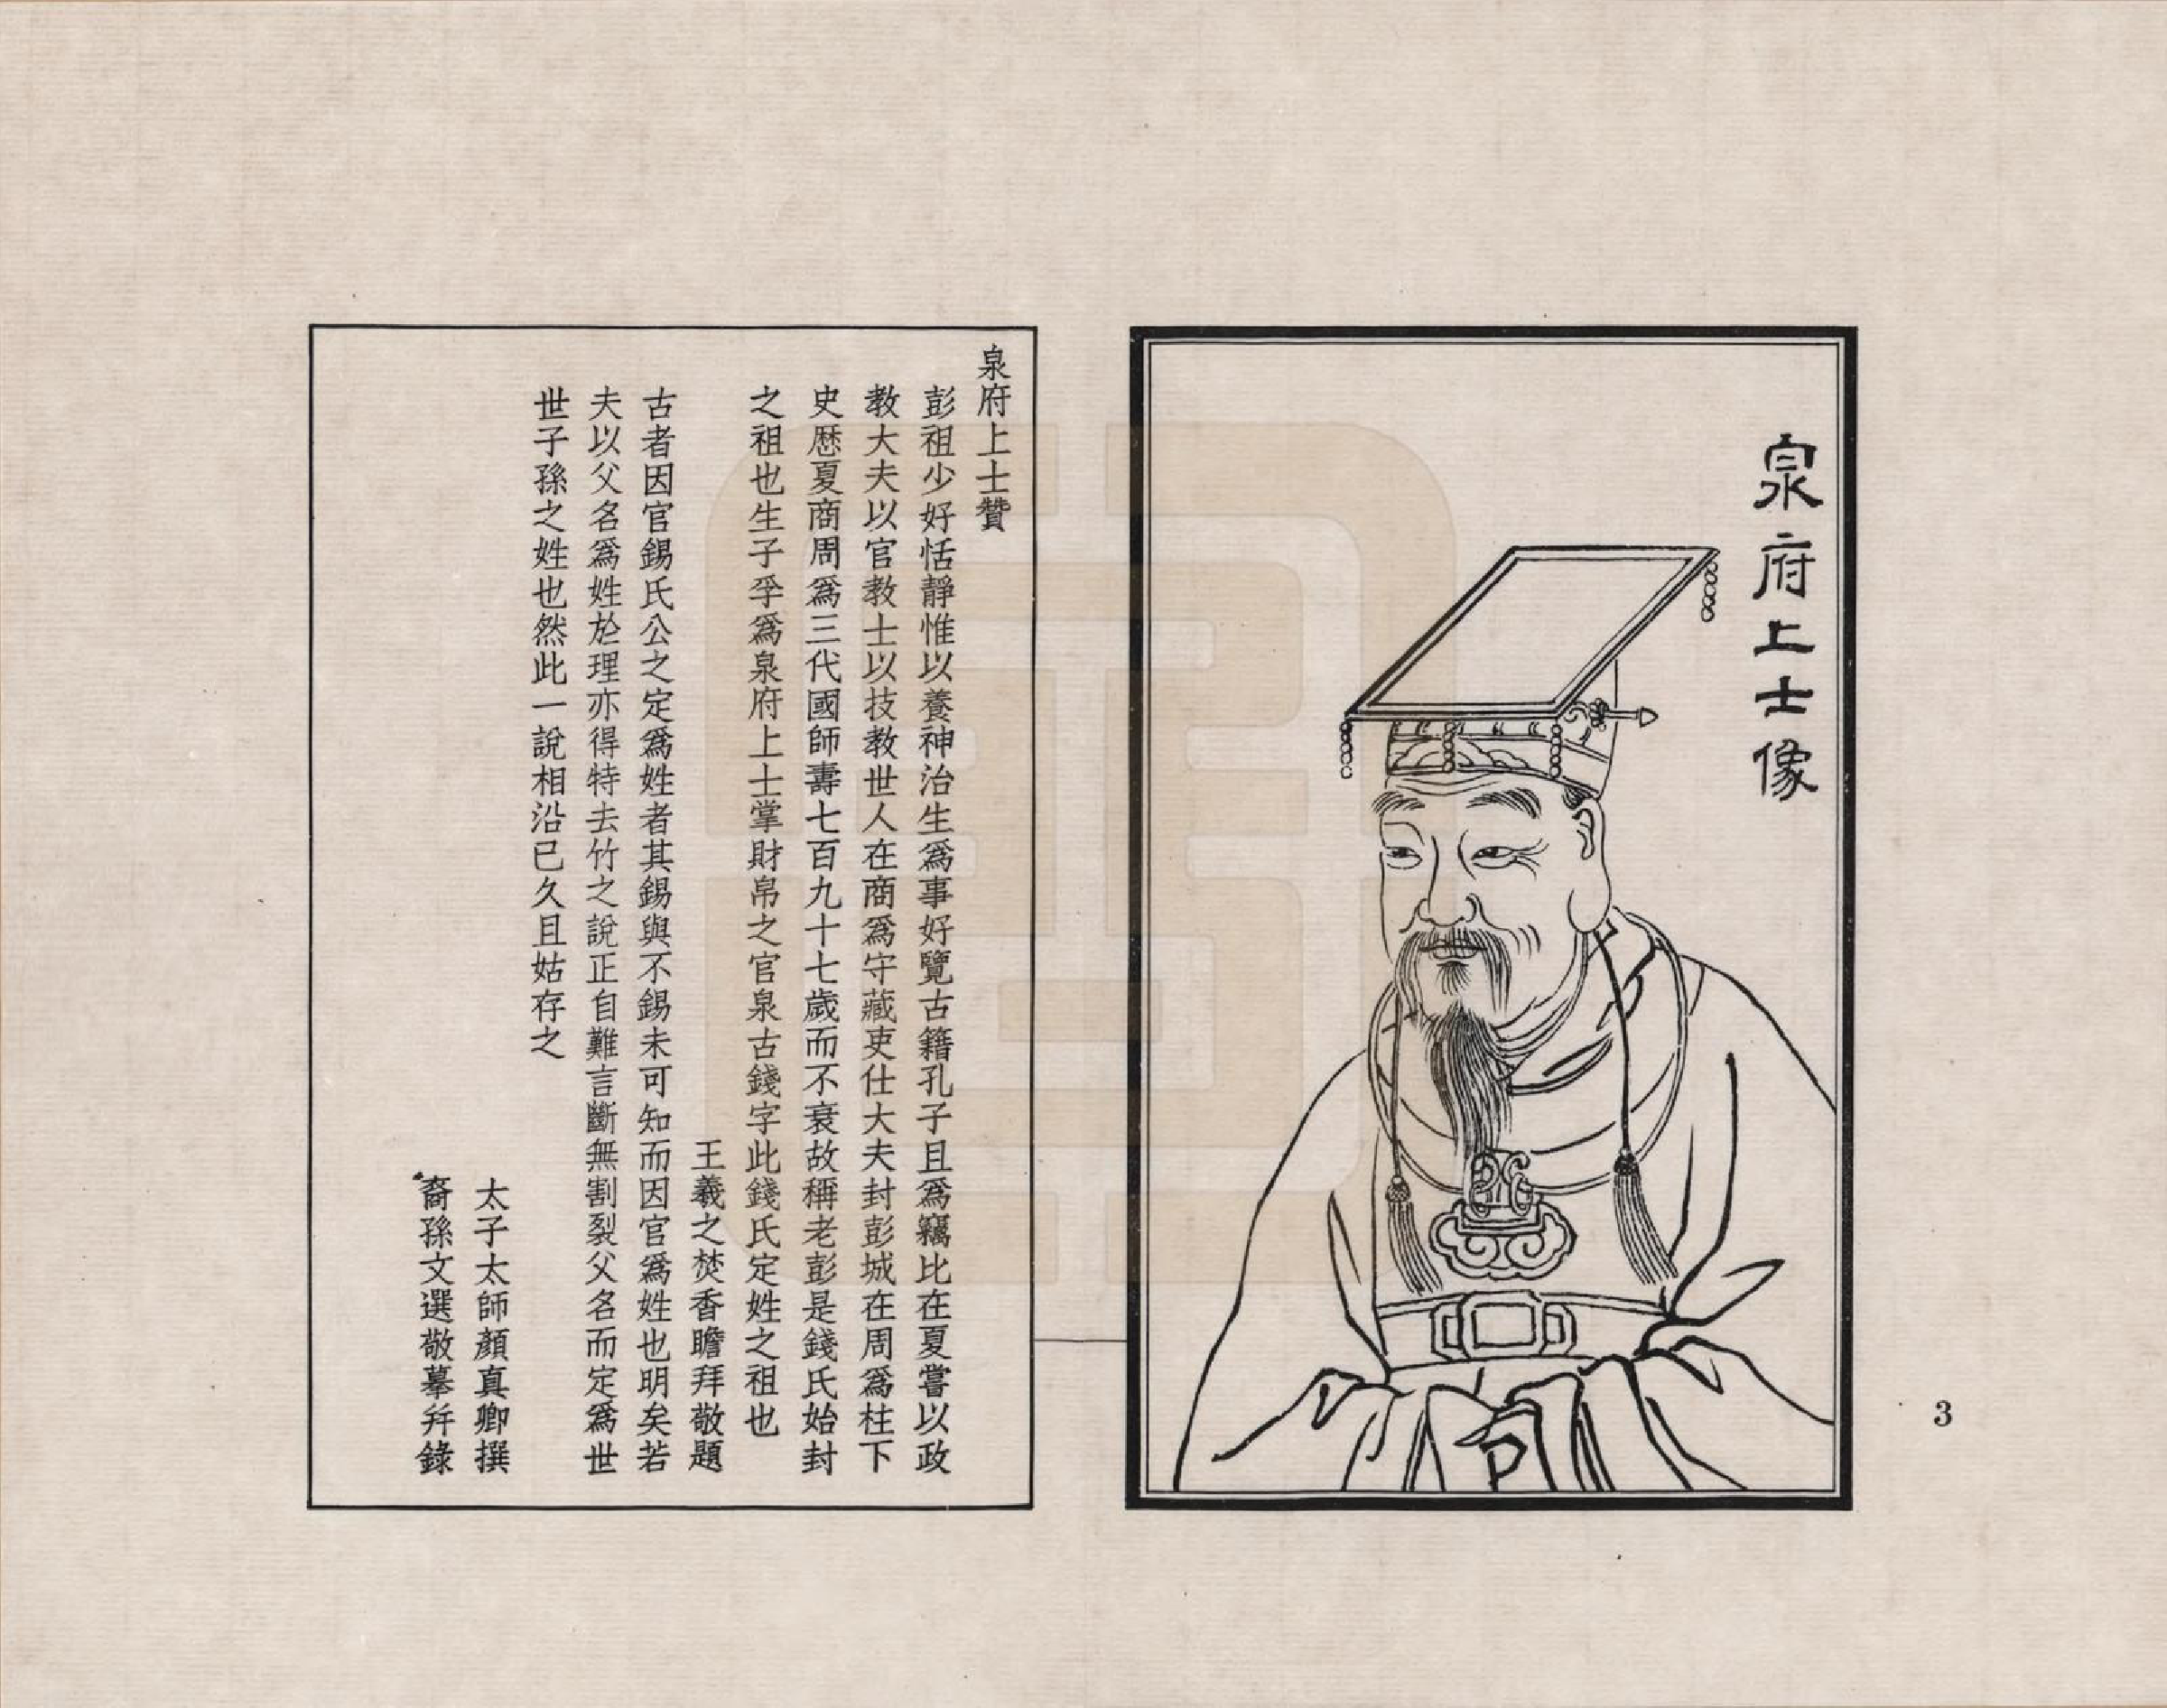 泉府上士像
3
泉府上士贊
彭祖少好恬靜惟以養神治生爲事好覽古籍孔子且爲竊比在夏嘗以政
教大夫以官教士以技教世人在商爲守藏吏仕大夫封彭城在周爲柱下
史歷夏商周爲三代國師壽七百九十七歲而不衰故稱老彭是錢氏始封
之祖也生子孚爲泉府上士掌財帛之官泉古錢字此錢氏定姓之祖也
王羲之焚香瞻拜敬題
古者因官錫氏公之定爲姓者其錫與不錫未可知而因官爲姓也明矣若
夫以父名爲姓於理亦得特去竹之說正自難言斷無割裂父名而定爲世
世子孫之姓也然此一說相沿已久且姑存之
太子太師顏真卿撰
裔孫文選敬摹并錄